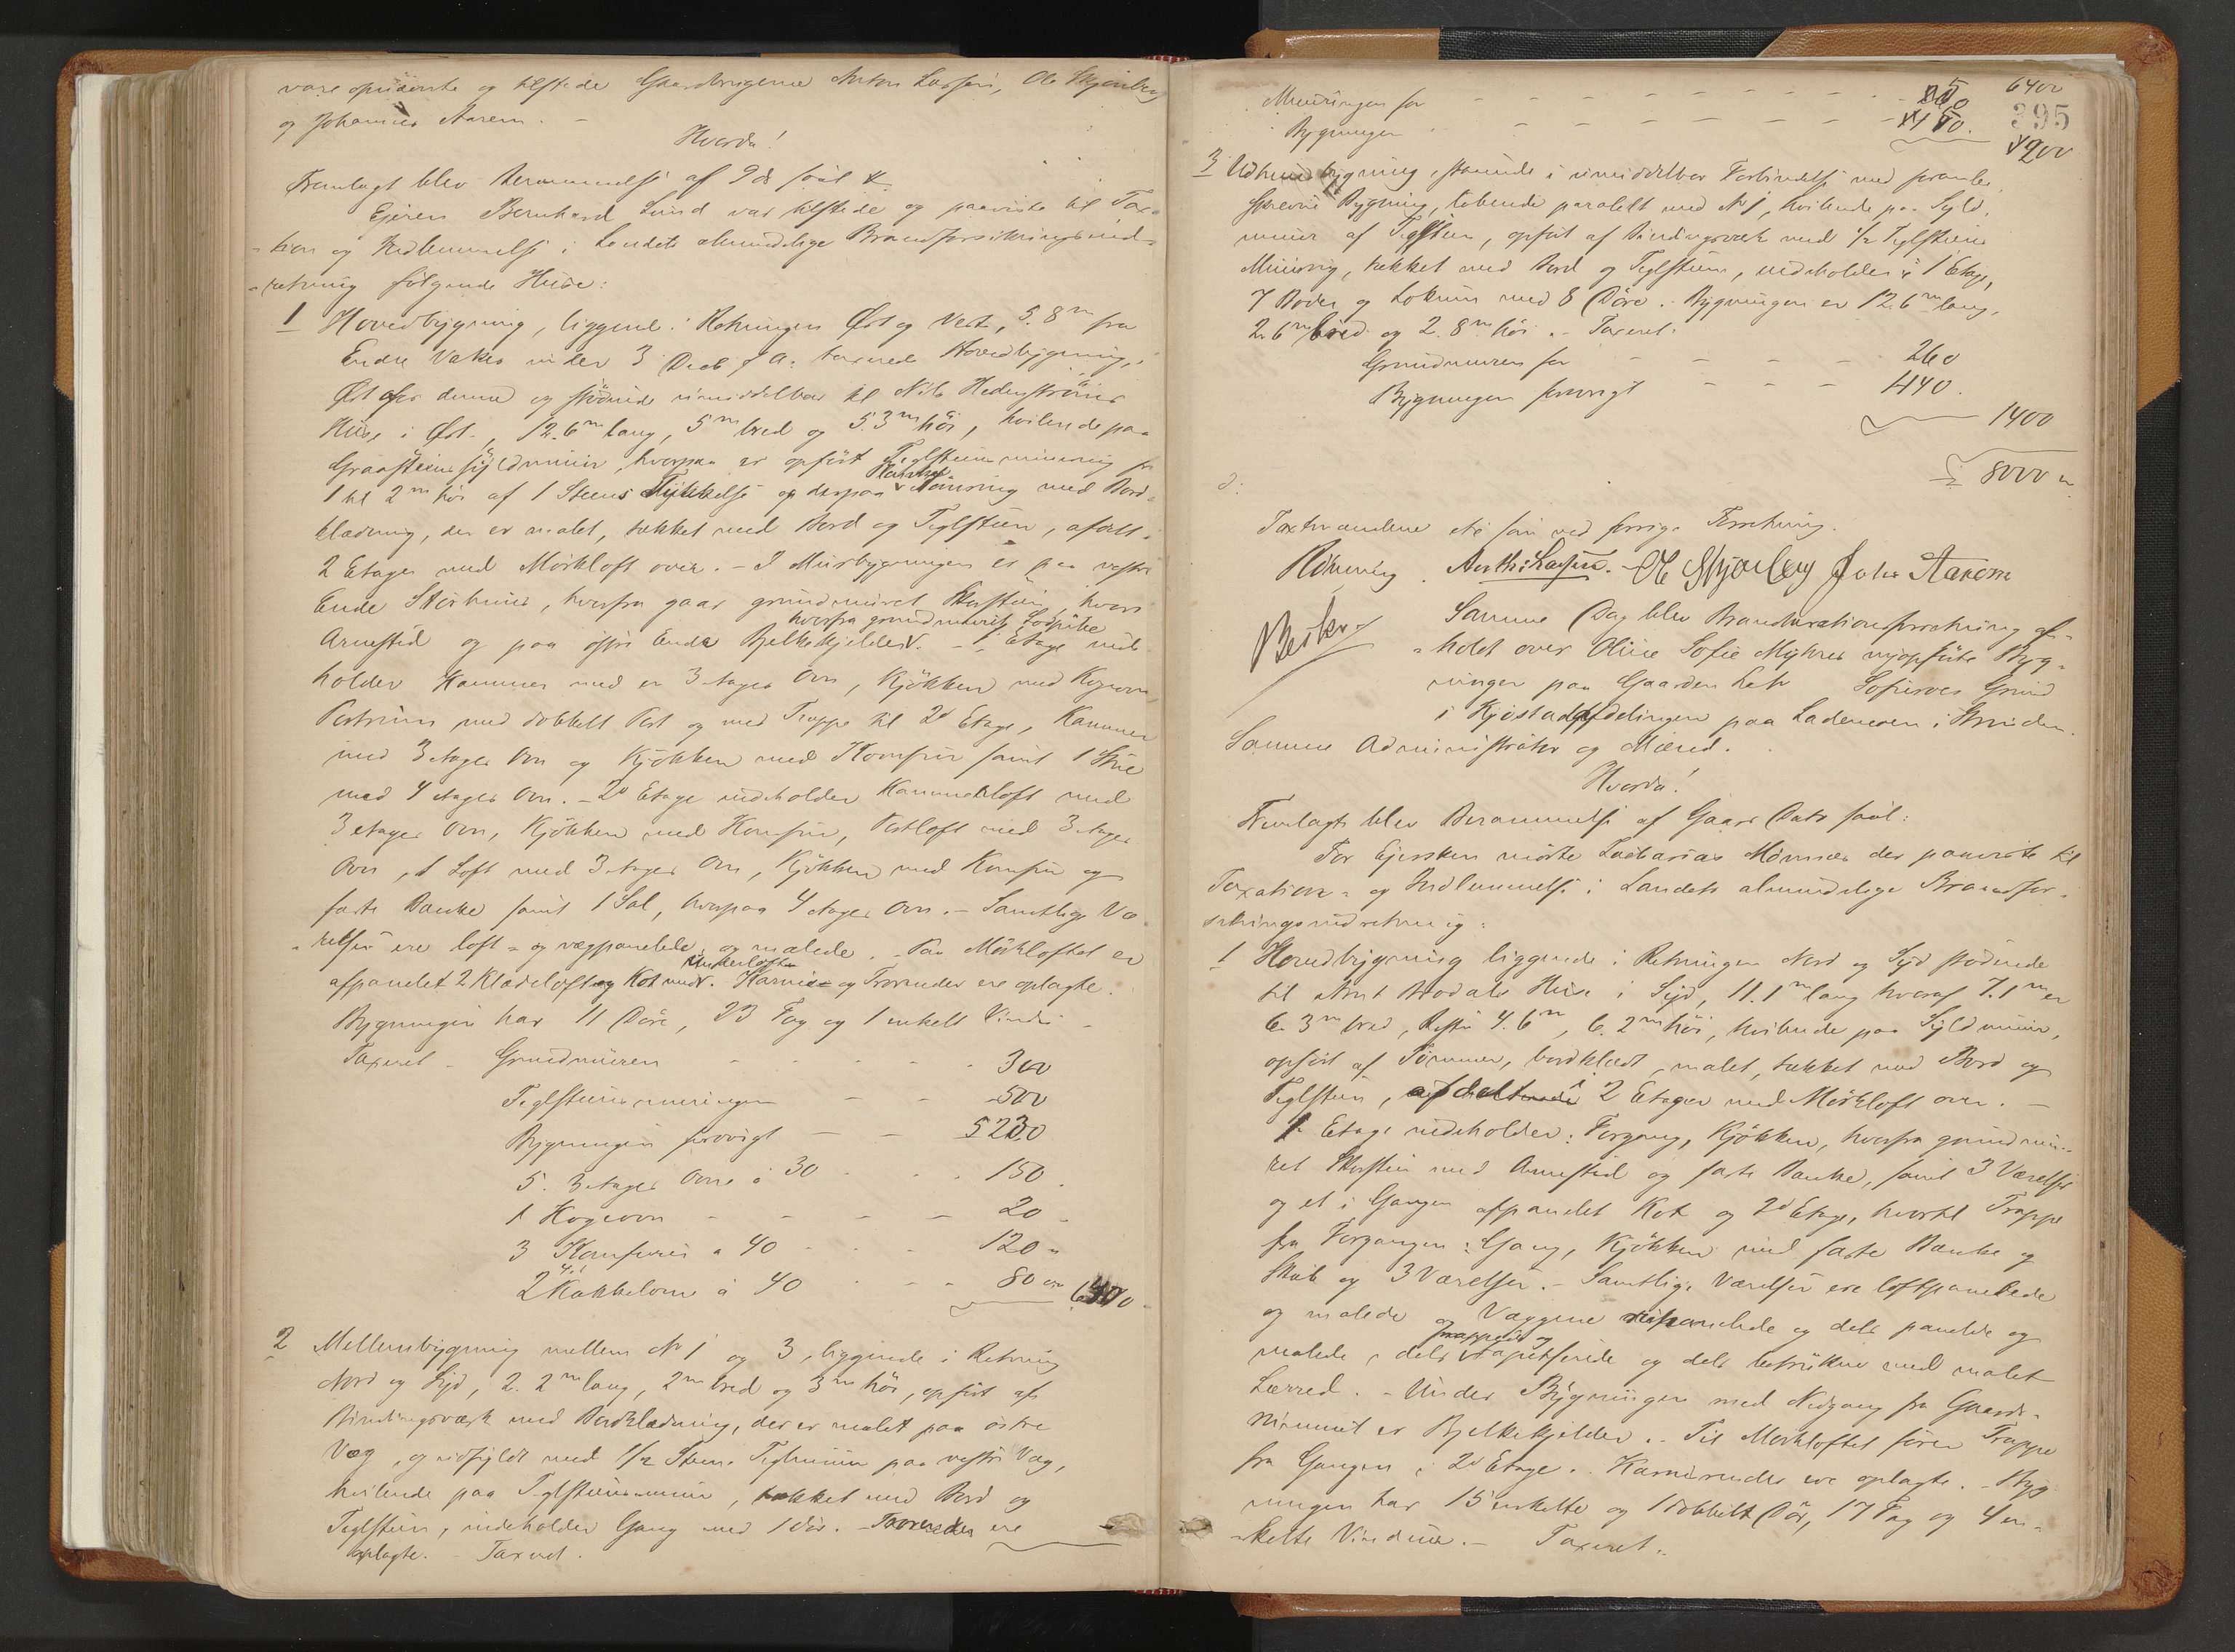 vare opnævnte og tilstede Gaardbrugerne Anton Larsen, Ole Skjønberg
og Johannes Aarem. -
Hvorda!
Fremlagt blev Berammelse af 9 ds saal.
Ejeren Bernhard Lund var tilstede og paaviste til Taxa-
tion og Indlemmelse i Landets almindelige Brandforsikringsind-
retning følgende Huse:
1 Hovedbygning, liggende i Retningen Øst og Vest, 5.8 m fra
Endre Vakes under 3 Decb f. A. taxerede Hovedbygning,
Øst for denne og stødende umiddelbar til Nils Hedenstrøms
Huse i Øst, 12.6 m lang, 5 m bred og 5.3 m høi, hvilende paa
Graasteens Syldmuur, hvorpaa er opført Teglsteensmuring fra
1 til 2 m høi af 1 Steens Tykkelse og derpaa Tømring med Bord-
klædning, der er malet, tækket med Bord og Teglsteen, afdelt i
2 Etager med Mørkloft over. - I Murbygningen er paa vestre
Ende Størhuus, hvorfra gaar grundmuret Skorsteen, hvori
hvorfra grundmuret Lodpibe
Arnested og paa østre Ende Bjelkekjelder. - 1 Etage inde-
holder Kammer med en 3 etages Ovn, Kjøkken med Kogeovn
Portrum med dobbelt Port og med Trappe til 2d Etage, Kammer
med 3 etages Ovn og Kjøkken med Komfur samt 1 Stue
med 4 etages Ovn. - 2d Etage indeholder Kammerloft med
3 etages Ovn, Kjøkken med Komfur, Portloft med 3 etages
Ovn, 1 Loft med 3 etages Ovn, Kjøkken med Komfur og
faste Bænke samt 1 Sal, hvorpaa 4 etages Ovn. - Samtlige Væ-
relser ere loft- og vægpanelede og malede. - Paa Mørkloftet er
afpanelet 2 Klædeloft og Kot
Karnis og Trævender ere oplagte.
Bygningen har 11 Døre, 23 Fag og 1 enkelt Vindu -
Taxeret - Grundmuren - - - 300
Teglsteensmuringen - - - 500
Bygningen forøvrigt - - 5230
5. 3 etages Ovne à 30 - - 150.
1 Kogeovn - - - - 20 -
3 Komfurer à 40 - - - 120 "
2 4 et. Kakkelovne à 40 - - - 80
2 Mellembygning mellem No 1 og 3, liggende i Retning
Nord og Syd, 2.2 m lang, 2 m bred og 3 m høi, opført af
Bindingsværk med Bordklædning, der er malet paa østre
Væg, og udfyldt med 1/2 Steens Teglmuur paa vestre Væg,
hvilende paa Teglsteensmuur, tækket med Bord og
Teglsteen, indeholder Gang med 1 Dør. - Tagrender ere
oplagte. - Taxeret.
6400
Muringen for - - - - - -
395
Bygningen - - - - - -
3 Udhuusbygning, staaende i umiddelbar Forbindelse med foranbe-
skrevne Bygning, løbende paralelt med No 1, hvilende paa Syld-
muur af Teglsteen, opført af Bindingsværk med 1/2 Teglsteens
Muring, tækket med Bord og Teglsteen, indeholder i 1 Etage,
7 Boder og Lokum med 8 Døre. Bygningen er 12.6 m lang,
2.6 m bred og 2.8 m høi. - Taxeret:
Grundmuren for - - - - 260
Bygningen forøvrigt - - - 1140.
1400
8000
Taxtmændene etc saa ved forrige Forretning.
Rønning. Anth: Larsen. Ole Skjønberg Johs Aarem
Beskr
Samme Dag blev Brandtaxationsforretning af-
holdt over Oline Sofie Myhres nyopførte Byg-
ninger paa Gaarden Sofieroes Grund
i Kjøstadafdelingen paa Lademoen i Strinden.
Samme Administrator og Mænd.
Hvorda!
Fremlagt blev Berammelse af Gaars Dato saal:
For Ejersken mødte Zacharias Momsæs der paaviste til
Taxation- og Indlemmelse i Landets almindelige Brandfor-
sikringsindretning:
1 Hovedbygning liggende i Retningen Nord og Syd stødende
til Huse i Syd, 11.1 m lang hvoraf 7.1 m er
6.3 m bred, Resten 4.6 m, 6.2 m høi, hvilende paa Syldmuur,
opført af Tømmer, bordklædt, malet, tækket med Bord og
Teglsteen, afdelt i 2 Etager med Mørkloft over. -
1 Etage indeholder: Forgang, Kjøkken, hvorfra grundmu-
ret Skorsteen med Arnested og faste Bænke, samt 3 Værelser
og et i Gangen afpanelet Kot og 2d Etage, hvortil Trappe
fra Forgangen: Gang, Kjøkken med faste Bænke og
Skab og 3 Værelser. - Samtlige Værelser ere loftspanelede
og malede og Væggene dels panelede og
malede, dels pappede og tapetserede og dels betrukne med malet
Lærred. - Under Bygningen med Nedgang fra Gaards-
rummet er Bjelkekjelder. - Til Mørkloftet fører Trappe
fra Gangen i 2d Etage. Karnisrender ere oplagte. - Byg-
ningen har 15 enkelte og 1 dobbelt Dør, 17 Fag og 4 en-
kelte Vinduer. - Taxeret: